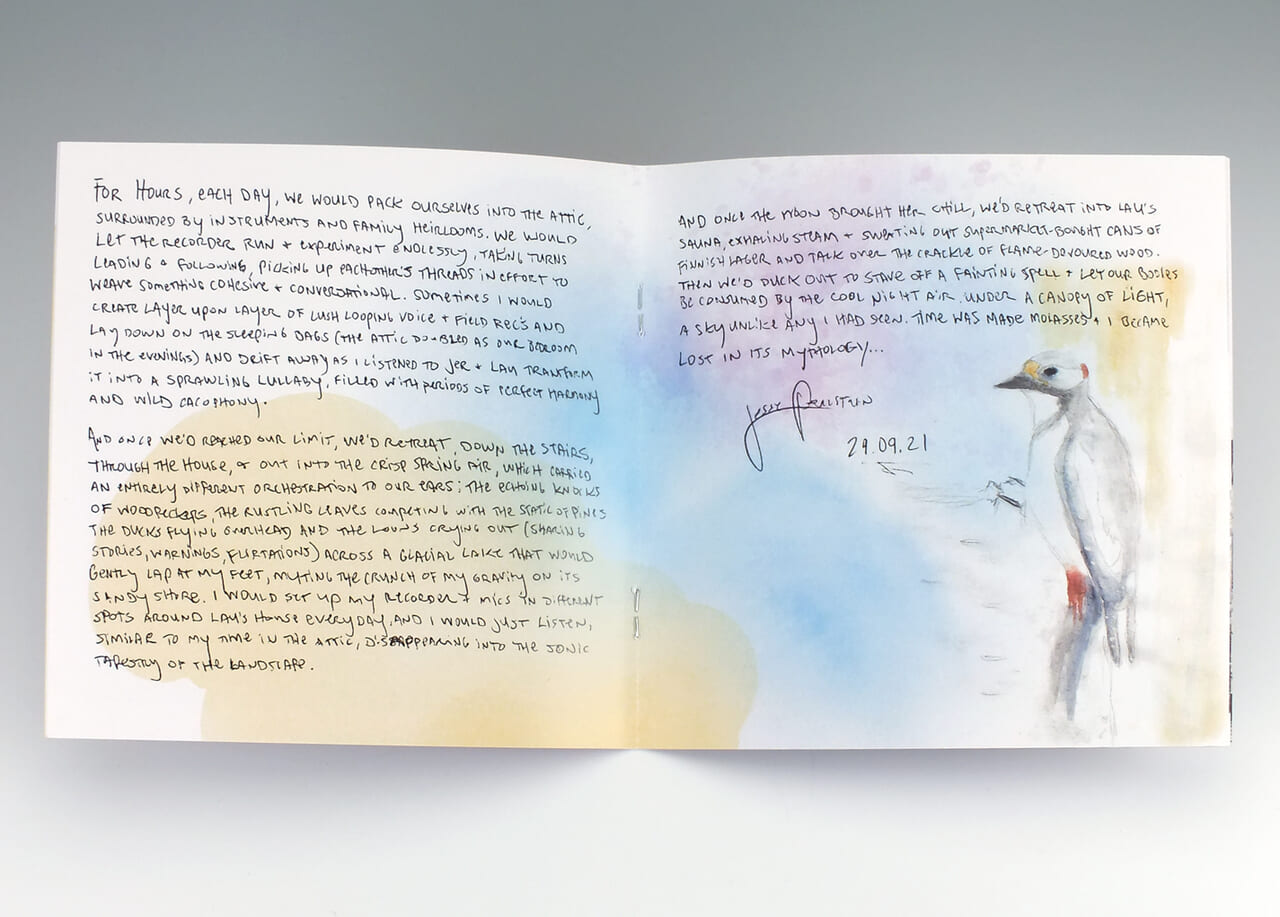 FOR HOURS, EACH DAY, WE WOULD PACK OURSELVES INTO THE ATTIC,
SURROUNDED BY INSTRUMENTS AND FAMILY HEIRLOOMS. WE WOULD
LET THE RECORDER RUN + EXPERIMENT ENDLESSLY, TAKING TURNS
LEADING + FOLLOWING, PICKING UP EACHOTHER'S THREADS IN EFFORT TO
WEAVE SOMETHING COHESIVE + CONVERSATIONAL. SOMETIMES I WOULD
CREATE LAYER UPON LAYER OF LUSH LOOPING VOICE + FIELD REC'S AND
LAY DOWN ON THE SLEEPING BAGS (THE ATTIC DOUBLED AS OUR BEDROOM
IN THE EVENINGS) AND DRIFT AWAY AS I LISTENED TO JER + LAU TRANSFORM
IT INTO A SPRAWLING LULLABY, FILLED WITH PERIODS OF PERFECT HARMONY
AND WILD CACOPHONY.
AND ONCE WE'D REACHED OUR LIMIT, WE'D RETREAT, DOWN THE STAIRS,
THROUGH THE HOUSE, + OUT INTO THE CRISP SPRING AIR, WHICH CARRIED
AN ENTIRELY DIFFERENT ORCHESTRATION TO OUR EARS; THE ECHOING KNOCKS
OF WOODPECKERS, THE RUSTLING LEAVES COMPETING WITH THE STATIC OF PINES
THE DUCKS FLYING OVERHEAD AND THE LOONS CRYING OUT (SHARING
STORIES, WARNINGS, FLIRTATIONS) ACROSS A GLACIAL LAKE THAT WOULD
GENTLY LAP AT MY FEET, MUTING THE CRUNCH OF MY GRAVITY ON ITS
SANDY SHORE. I WOULD SET UP MY RECORDER + MICS IN DIFFERENT
SPOTS AROUND LAU'S HOUSE EVERYDAY, AND I WOULD JUST LISTEN,
SIMILAR TO MY TIME IN THE ATTIC, DISAPPEARING INTO THE SONIC
TAPESTRY OF THE LANDSCAPE.
AND ONCE THE MOON BROUGHT HER CHILL, WE'D RETREAT INTO LAU'S
SAUNA, EXHALING STEAM + SWEATING OUT SUPERMARKET-BOUGHT CANS OF
FINNISH LAGER AND TALK OVER THE CRACKLE OF FLAME-DEVOURED WOOD.
THEN WE'D DUCK OUT TO STAVE OFF A FAINTING SPELL + LET OUR BODIES
BE CONSUMED BY THE COOL NIGHT AIR. UNDER A CANOPY OF LIGHT,
A SKY UNLIKE ANY I HAD SEEN. TIME WAS MADE MOLASSES + I BECAME
LOST IN ITS MYTHOLOGY...
29.09.21